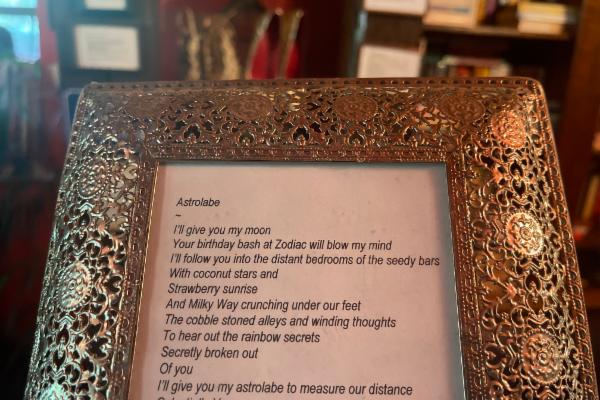 Astrolabe
~
I'll give you my moon
Your birthday bash at Zodiac will blow my mind
I'll follow you into the distant bedrooms of the seedy bars
With coconut stars and
Strawberry sunrise
And Milky Way crunching under our feet
The cobble stoned alleys and winding thoughts
To hear out the rainbow secrets
Secretly broken out
Of you
I'll give you my astrolabe to measure our distance